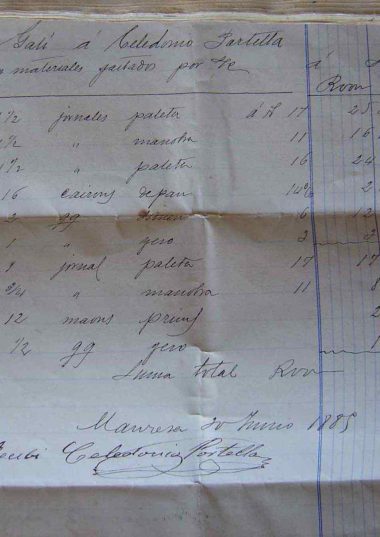 Galí á Celedonio Portella
materiales gastados por
Rvon
1½ jornales paleta á R 17 25
1½ " manobra 11 16
1½ " paleta 16 24
16 cairons de pau 2
2 qq 6 12
1 " gero 2 2
1 jornal paleta 17 17
¾ " manobra 11 8
12 maons prims 2
½ qq gero 1
Suma total Rvon
Manresa 20 Junio 1885
Recibí Celedonio Portella